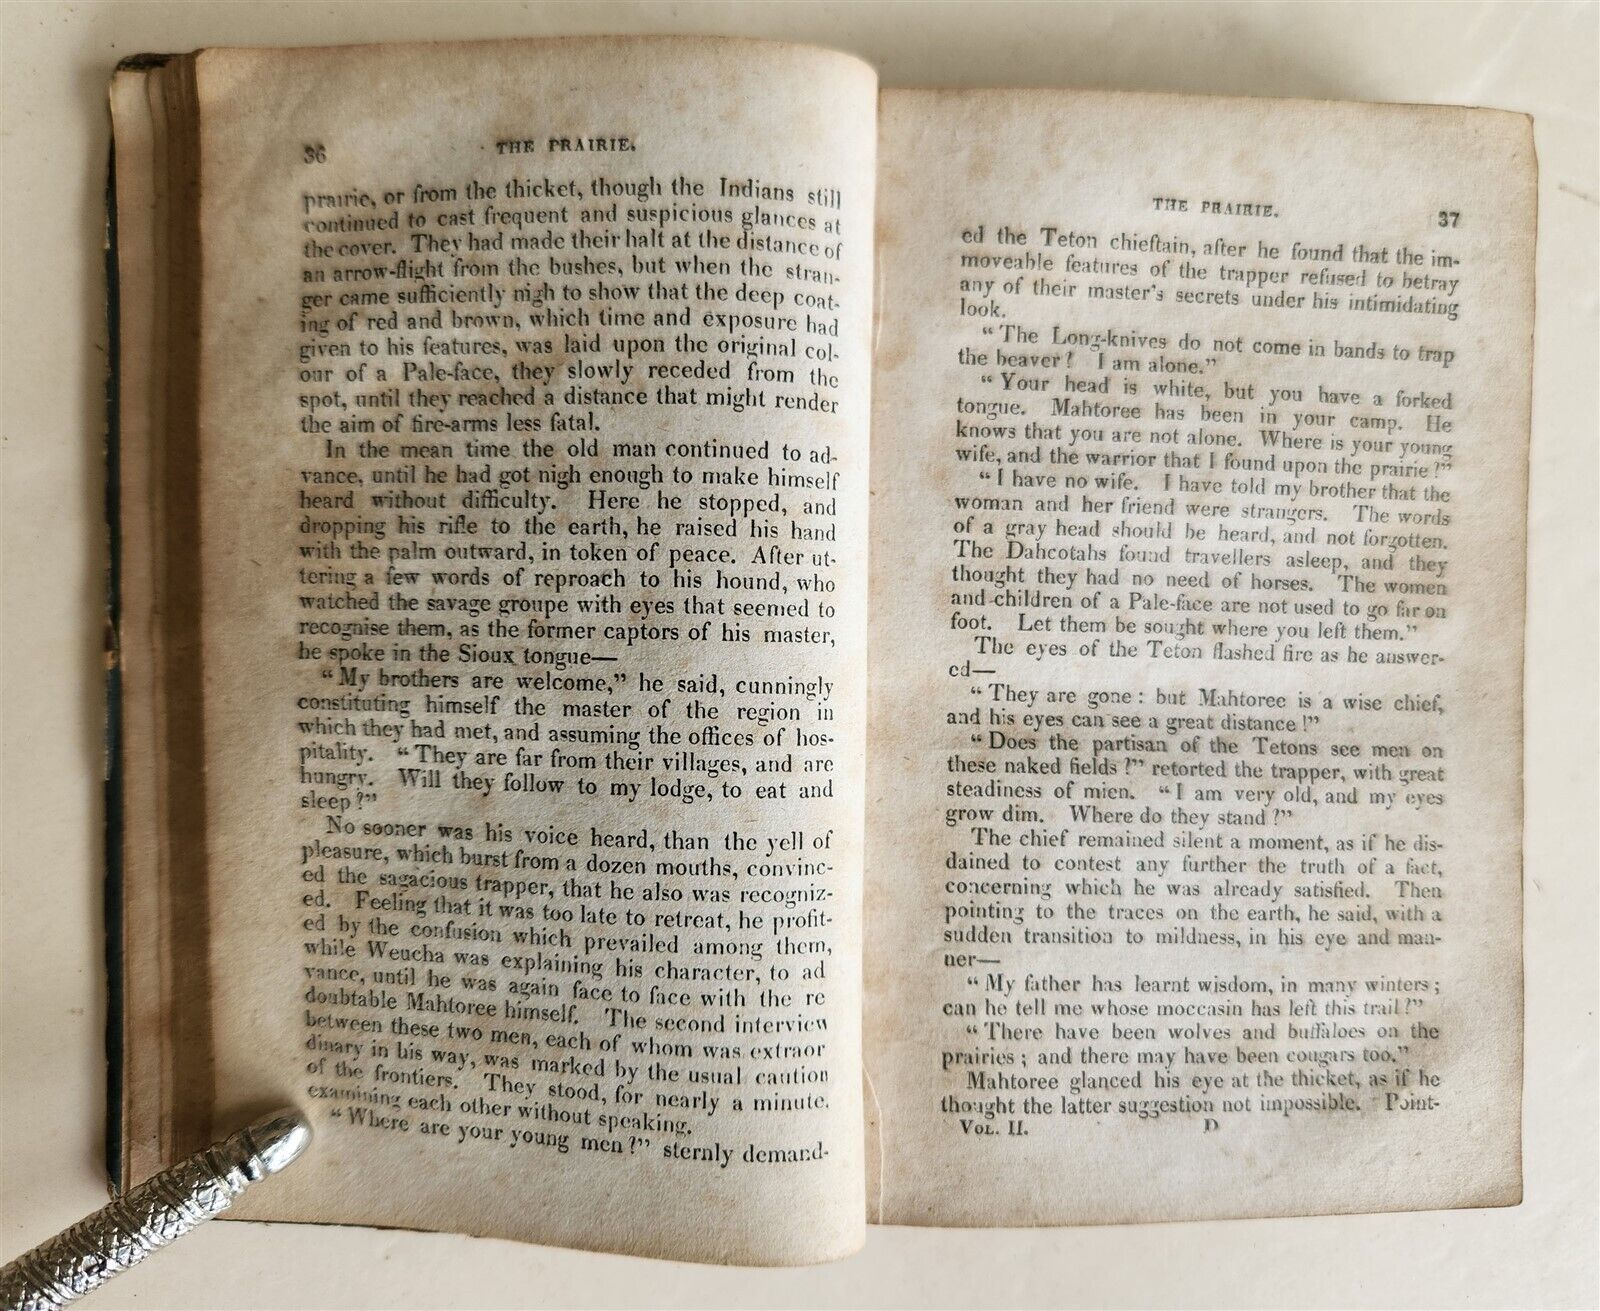 36
THE PRAIRIE.
prairie, or from the thicket, though the Indians still
continued to cast frequent and suspicious glances at
the cover. They had made their halt at the distance of
an arrow-flight from the bushes, but when the stran-
ger came sufficiently nigh to show that the deep coat-
ing of red and brown, which time and exposure had
given to his features, was laid upon the original col-
our of a Pale-face, they slowly receded from the
spot, until they reached a distance that might render
the aim of fire-arms less fatal.
In the mean time the old man continued to ad-
vance, until he had got nigh enough to make himself
heard without difficulty. Here he stopped, and
dropping his rifle to the earth, he raised his hand
with the palm outward, in token of peace. After ut-
tering a few words of reproach to his hound, who
watched the savage groupe with eyes that seemed to
recognise them, as the former captors of his master,
he spoke in the Sioux tongue—
"My brothers are welcome," he said, cunningly
constituting himself the master of the region in
which they had met, and assuming the offices of hos-
pitality. "They are far from their villages, and are
hungry. Will they follow to my lodge, to eat and
sleep?"
No sooner was his voice heard, than the yell of
pleasure, which burst from a dozen mouths, convinc-
ed the sagacious trapper, that he also was recogniz-
ed. Feeling that it was too late to retreat, he profit-
ed by the confusion which prevailed among them,
while Weucha was explaining his character, to ad
vance, until he was again face to face with the re
doubtable Mahtoree himself. The second interview
between these two men, each of whom was extraor
dinary in his way, was marked by the usual caution
of the frontiers. They stood, for nearly a minute,
examining each other without speaking.
"Where are your young men?" sternly demand-
THE PRAIRIE.
37
ed the Teton chieftain, after he found that the im-
moveable features of the trapper refused to betray
any of their master's secrets under his intimidating
look.
"The Long-knives do not come in bands to trap
the beaver? I am alone."
"Your head is white, but you have a forked
tongue. Mahtoree has been in your camp. He
knows that you are not alone. Where is your young
wife, and the warrior that I found upon the prairie?"
"I have no wife. I have told my brother that the
woman and her friend were strangers. The words
of a gray head should be heard, and not forgotten.
The Dahcotahs found travellers asleep, and they
thought they had no need of horses. The women
and children of a Pale-face are not used to go far on
foot. Let them be sought where you left them."
The eyes of the Teton flashed fire as he answer-
ed—
"They are gone: but Mahtoree is a wise chief,
and his eyes can see a great distance!"
"Does the partisan of the Tetons see men on
these naked fields?" retorted the trapper, with great
steadiness of mien. "I am very old, and my eyes
grow dim. Where do they stand?"
The chief remained silent a moment, as if he dis-
dained to contest any further the truth of a fact,
concerning which he was already satisfied. Then
pointing to the traces on the earth, he said, with a
sudden transition to mildness, in his eye and man-
ner—
"My father has learnt wisdom, in many winters;
can he tell me whose moccasin has left this trail?"
"There have been wolves and buffaloes on the
prairies; and there may have been cougars too."
Mahtoree glanced his eye at the thicket, as if he
thought the latter suggestion not impossible. Point-
VOL. II. D